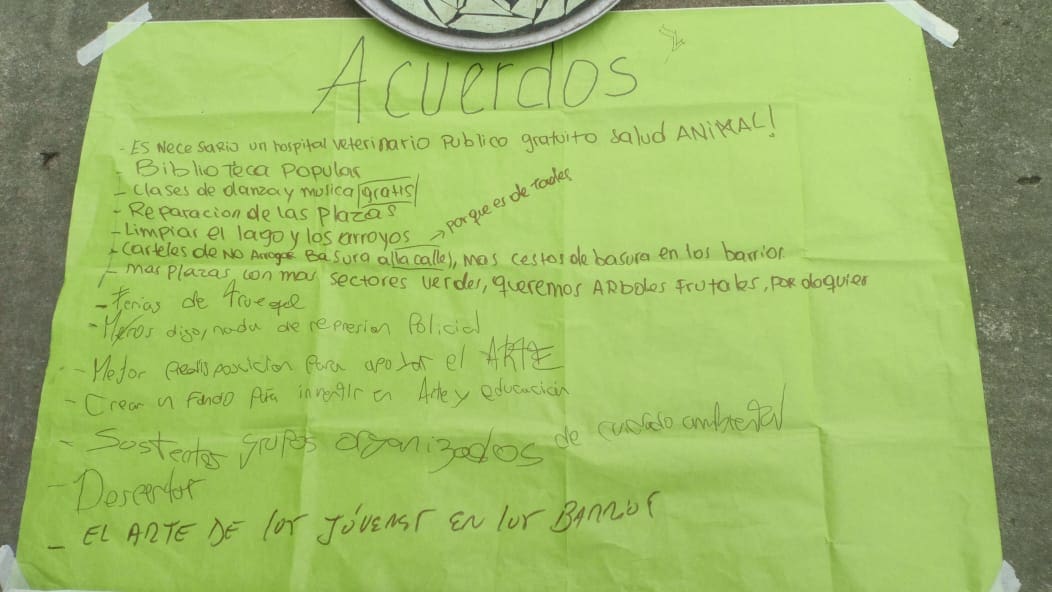 Acuerdos
- ES NECESARIO un hospital veterinario publico gratuito salud ANIMAL!
- Biblioteca Popular
- Clases de danza y musica gratis
- Reparacion de las plazas
- Limpiar el lago y los arroyos → porque es de todes
- carteles de NO Arrojar Basura a la calle, mas cestos de basura en los barrios
- mas plazas con mas sectores verdes, queremos ARboles frutales, por doquier
- Ferias de trueque
- Menos digo, nada de represion Policial
- Mejor predisposicion para apoyar el ARTE
- Crear un Fondo para invertir en Arte y educación
- grupos organizados de cuidado ambiental
- EL ARTE DE los JÓVENES EN los BARRIOS